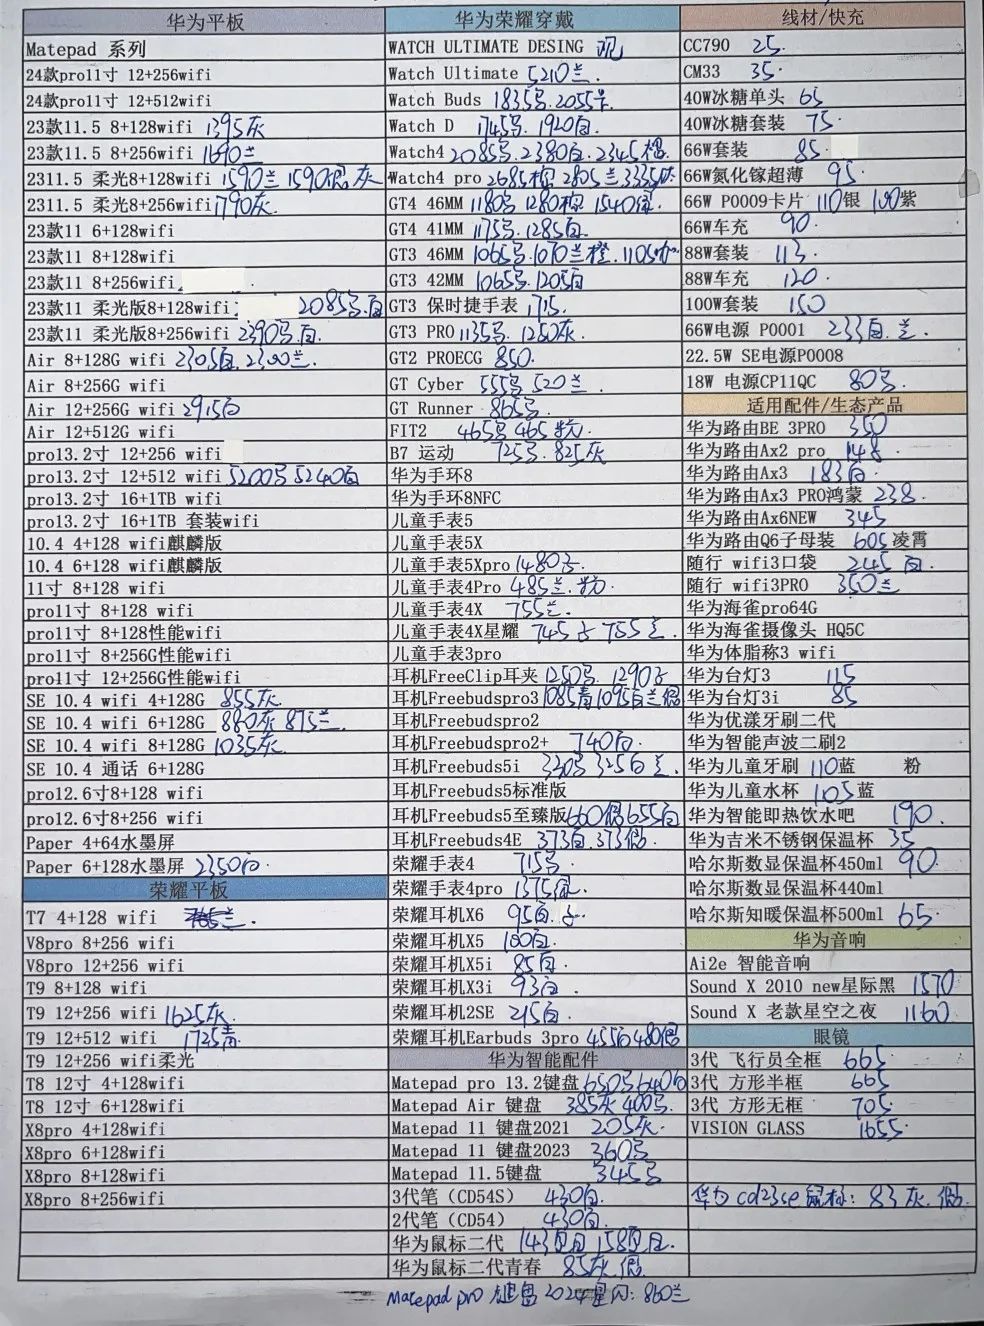 华为平板
Matepad 系列
24款pro11寸 12+256wifi
24款pro11寸 12+512wifi
23款11.5 8+128wifi 1395灰
23款11.5 8+256wifi 1690兰
2311.5 柔光8+128wifi 1590兰 1590 灰
2311.5 柔光8+256wifi 1790灰.
23款11 6+128wifi
23款11 8+128wifi
23款11 8+256wifi
23款11 柔光版8+128wifi 2085号.白
23款11 柔光版8+256wifi 2390号.白.
Air 8+128G wifi 2305白.2300兰.
Air 8+256G wifi
Air 12+256G wifi 2915白
Air 12+512G wifi
pro13.2寸 12+256 wifi
pro13.2寸 12+512 wifi 5200号 5240白
pro13.2寸 16+1TB wifi
pro13.2寸 16+1TB 套装wifi
10.4 4+128 wifi麒麟版
10.4 6+128 wifi麒麟版
11寸 8+128 wifi
pro11寸 8+128 wifi
pro11寸 8+128性能wifi
pro11寸 8+256G性能wifi
pro11寸 12+256G性能wifi
SE 10.4 wifi 4+128G 855灰
SE 10.4 wifi 6+128G 880灰 875兰.
SE 10.4 wifi 8+128G 1035灰.
SE 10.4 通话 6+128G
pro12.6寸8+128 wifi
pro12.6寸8+256 wifi
Paper 4+64水墨屏
Paper 6+128水墨屏 2350白.
荣耀平板
T7 4+128 wifi
V8pro 8+256 wifi
V8pro 12+256 wifi
T9 8+128 wifi
T9 12+256 wifi 1625灰.
T9 12+512 wifi 1725青.
T9 12+256 wifi柔光
T8 12寸 4+128wifi
T8 12寸 6+128wifi
X8pro 4+128wifi
X8pro 6+128wifi
X8pro 8+128wifi
X8pro 8+256wifi
华为荣耀穿戴
WATCH ULTIMATE DESING 现
Watch Ultimate 5210兰.
Watch Buds 1835号.2055
Watch D 1745号.1920白.
Watch4 2085号.2380白.2345棕.
Watch4 pro 2685棕 2805兰 3335灰
GT4 46MM 1180号 1280棕 1540绿.
GT4 41MM 1175号.1285白.
GT3 46MM 1065号.1070兰橙.1105
GT3 42MM 1065号.1205白
GT3 保时捷手表 1715.
GT3 PRO 1135号.1250灰.
GT2 PROECG 850.
GT Cyber 555号 520兰.
GT Runner 865号.
FIT2 465号 465
B7 运动 725号.825灰
华为手环8
华为手环8NFC
儿童手表5
儿童手表5X
儿童手表5Xpro 1480
儿童手表4Pro 485兰.
儿童手表4X 755兰.
儿童手表4X星耀 745 755兰.
儿童手表3pro
耳机FreeClip耳夹 1250号. 1290
耳机Freebudspro3 1085青 1095白兰
耳机Freebudspro2
耳机Freebudspro2+ 740白.
耳机Freebuds5i 330号 325白 兰.
耳机Freebuds5标准版
耳机Freebuds5至臻版 660 655白
耳机Freebuds4E 373白.373
荣耀手表4 715号.
荣耀手表4pro 1375
荣耀耳机X6 95白.
荣耀耳机X5 100白.
荣耀耳机X5i 85白.
荣耀耳机X3i 93白.
荣耀耳机2SE 215白
荣耀耳机Earbuds 3pro 455白 480
华为智能配件
Matepad pro 13.2键盘 650号 640白
Matepad Air 键盘 385灰 400号.
Matepad 11 键盘2021 205灰.
Matepad 11 键盘2023 360号
Matepad 11.5键盘 345号
3代笔（CD54S） 430白.
2代笔（CD54） 430白.
华为鼠标二代 143 158
华为鼠标二代青春 85灰
Matepad pro 键盘 2024星闪: 860兰
线材/快充
CC790 25.
CM33 35.
40W冰糖单头 65
40W冰糖套装 75.
66W套装 85.
66W氮化镓超薄 95.
66W P0009卡片 110银 100紫
66W车充 90.
88W套装 113.
88W车充 120.
100W套装 150
66W电源 P0001 233白.兰.
22.5W SE电源P0008
18W 电源CP11QC 80号.
适用配件/生态产品
华为路由BE 3PRO 350
华为路由Ax2 pro 148.
华为路由Ax3 183白.
华为路由Ax3 PRO鸿蒙 238.
华为路由Ax6NEW 345
华为路由Q6子母装 605凌霄
随行 wifi3口袋 245 白.
随行 wifi3PRO 350兰
华为海雀pro64G
华为海雀摄像头 HQ5C
华为体脂称3 wifi
华为台灯3 115
华为台灯3i 85
华为优漾牙刷二代
华为智能声波二刷2
华为儿童牙刷 110蓝 粉
华为儿童水杯 105蓝
华为智能即热饮水吧 190.
华为吉米不锈钢保温杯 35
哈尔斯数显保温杯450ml 90.
哈尔斯数显保温杯440ml
哈尔斯知暖保温杯500ml 65.
华为音响
Ai2e 智能音响
Sound X 2010 new星际黑 1570
Sound X 老款星空之夜 1160
眼镜
3代 飞行员全框 665
3代 方形半框 665
3代 方形无框 705
VISION GLASS 1655
华为 cd23se 鼠标: 83灰.